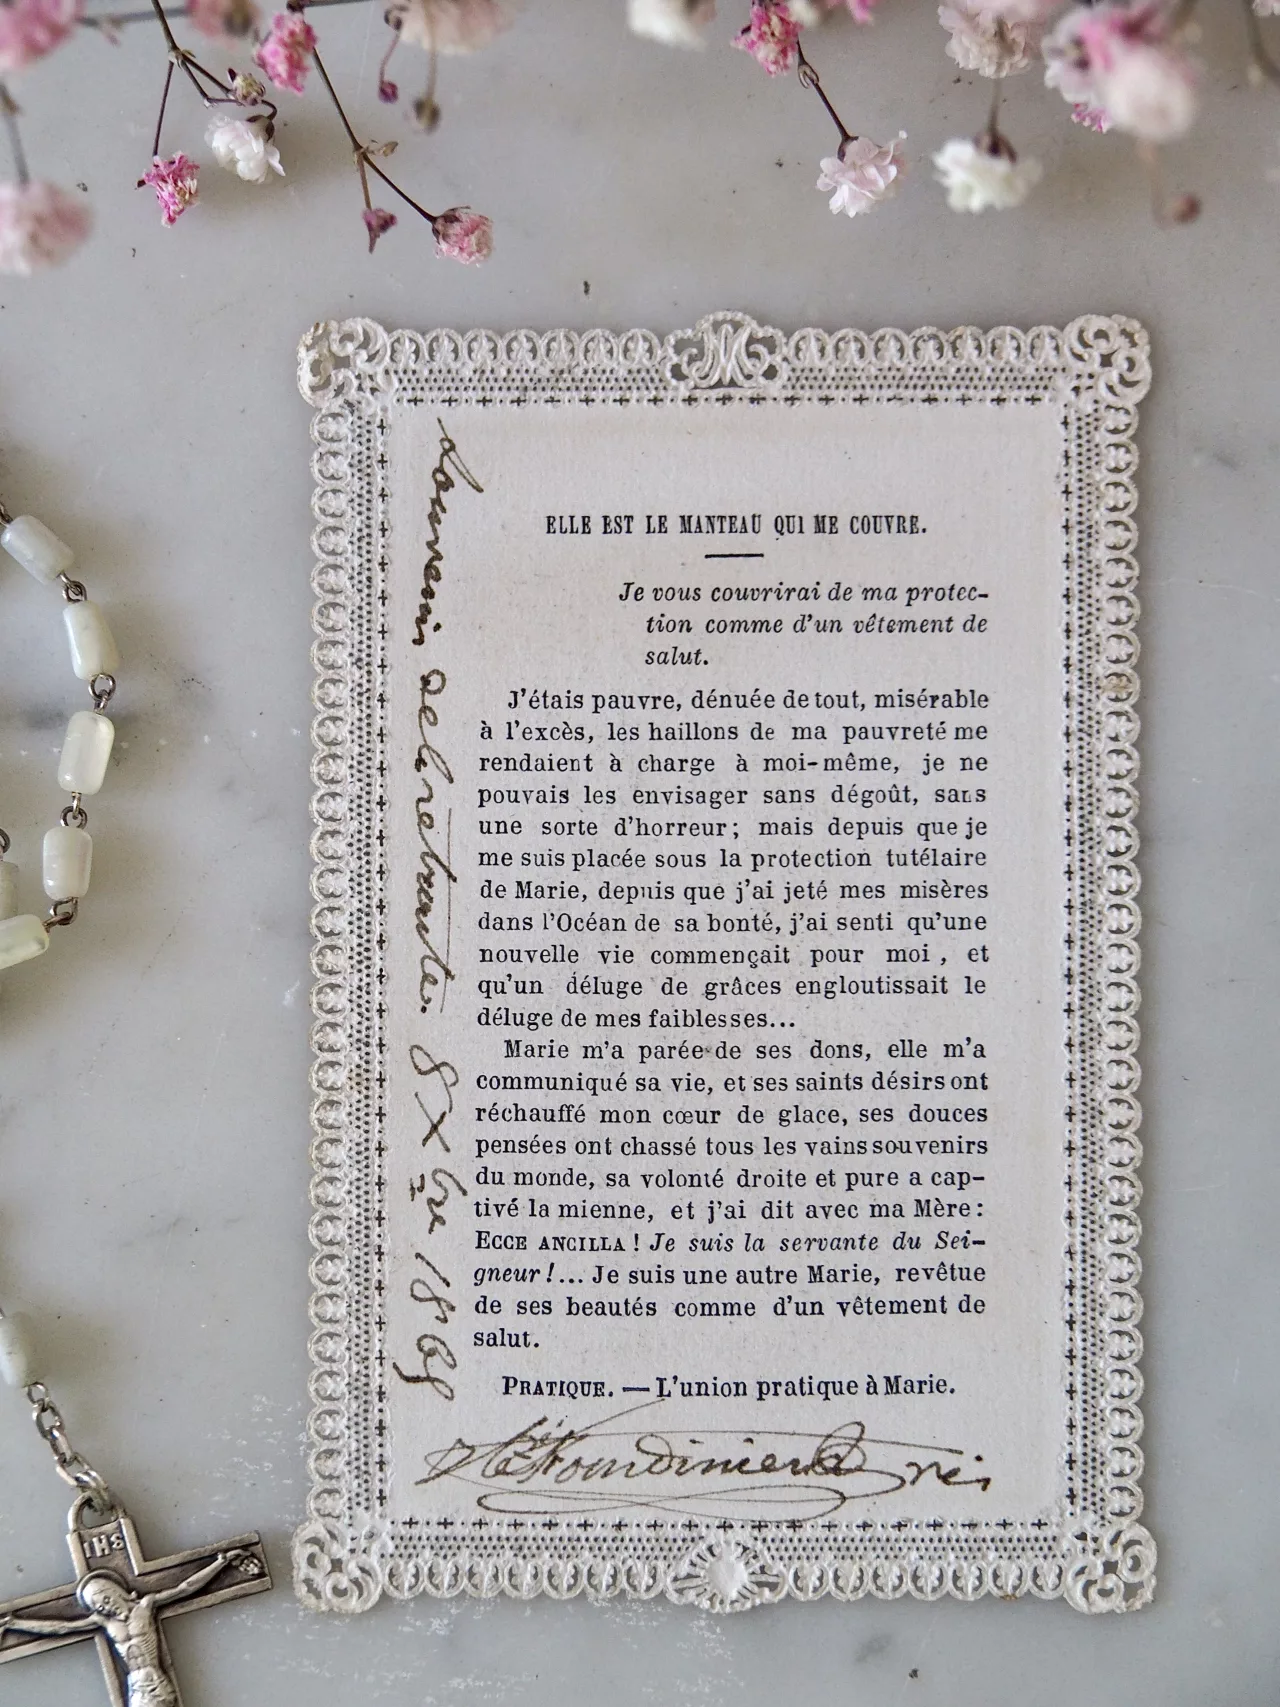 ELLE EST LE MANTEAU QUI ME COUVRE.
Je vous couvrirai de ma protec-
tion comme d'un vêtement de
salut.
J'étais pauvre, dénuée de tout, misérable
à l'excès, les haillons de ma pauvreté me
rendaient à charge à moi-même, je ne
pouvais les envisager sans dégoût, sans
une sorte d'horreur; mais depuis que je
me suis placée sous la protection tutélaire
de Marie, depuis que j'ai jeté mes misères
dans l'Océan de sa bonté, j'ai senti qu'une
nouvelle vie commençait pour moi, et
qu'un déluge de grâces engloutissait le
déluge de mes faiblesses...
Marie m'a parée de ses dons, elle m'a
communiqué sa vie, et ses saints désirs ont
réchauffé mon cœur de glace, ses douces
pensées ont chassé tous les vains souvenirs
du monde, sa volonté droite et pure a cap-
tivé la mienne, et j'ai dit avec ma Mère:
ECCE ANCILLA! Je suis la servante du Sei-
gneur!... Je suis une autre Marie, revêtue
de ses beautés comme d'un vêtement de
salut.
PRATIQUE. — L'union pratique à Marie.
souvenir de la retraite. 8 Xbre 1869
IHS